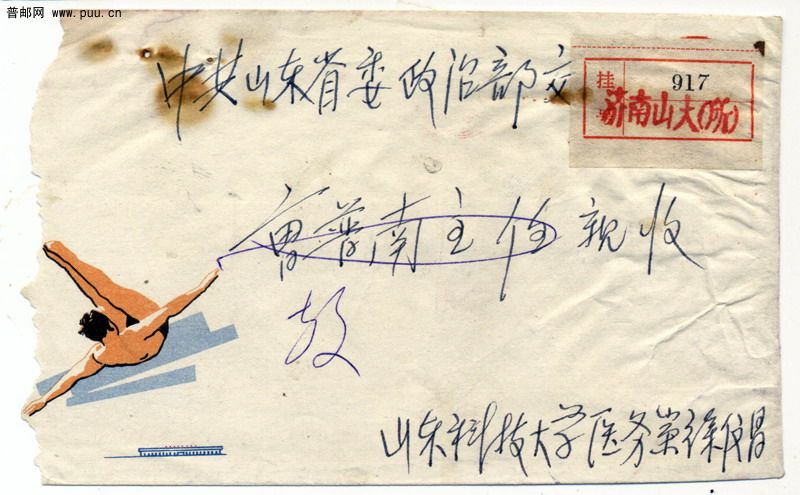 普邮网 www.puu.cn
中共山东省委政治部交
挂 917
济南山大(所)
曹普南主任亲收
山东科技大学医务室徐俊昌